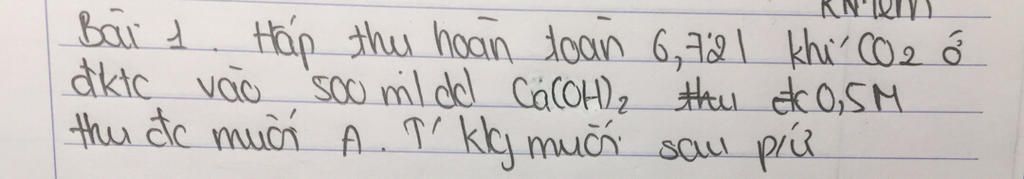 Bài 1. Hấp thu hoàn toàn 6,721 khí CO2 ở
đktc vào 500 ml dd Ca(OH)2 thu đc 0,5M
thu đc muối A. T' klg muối sau p/ứ